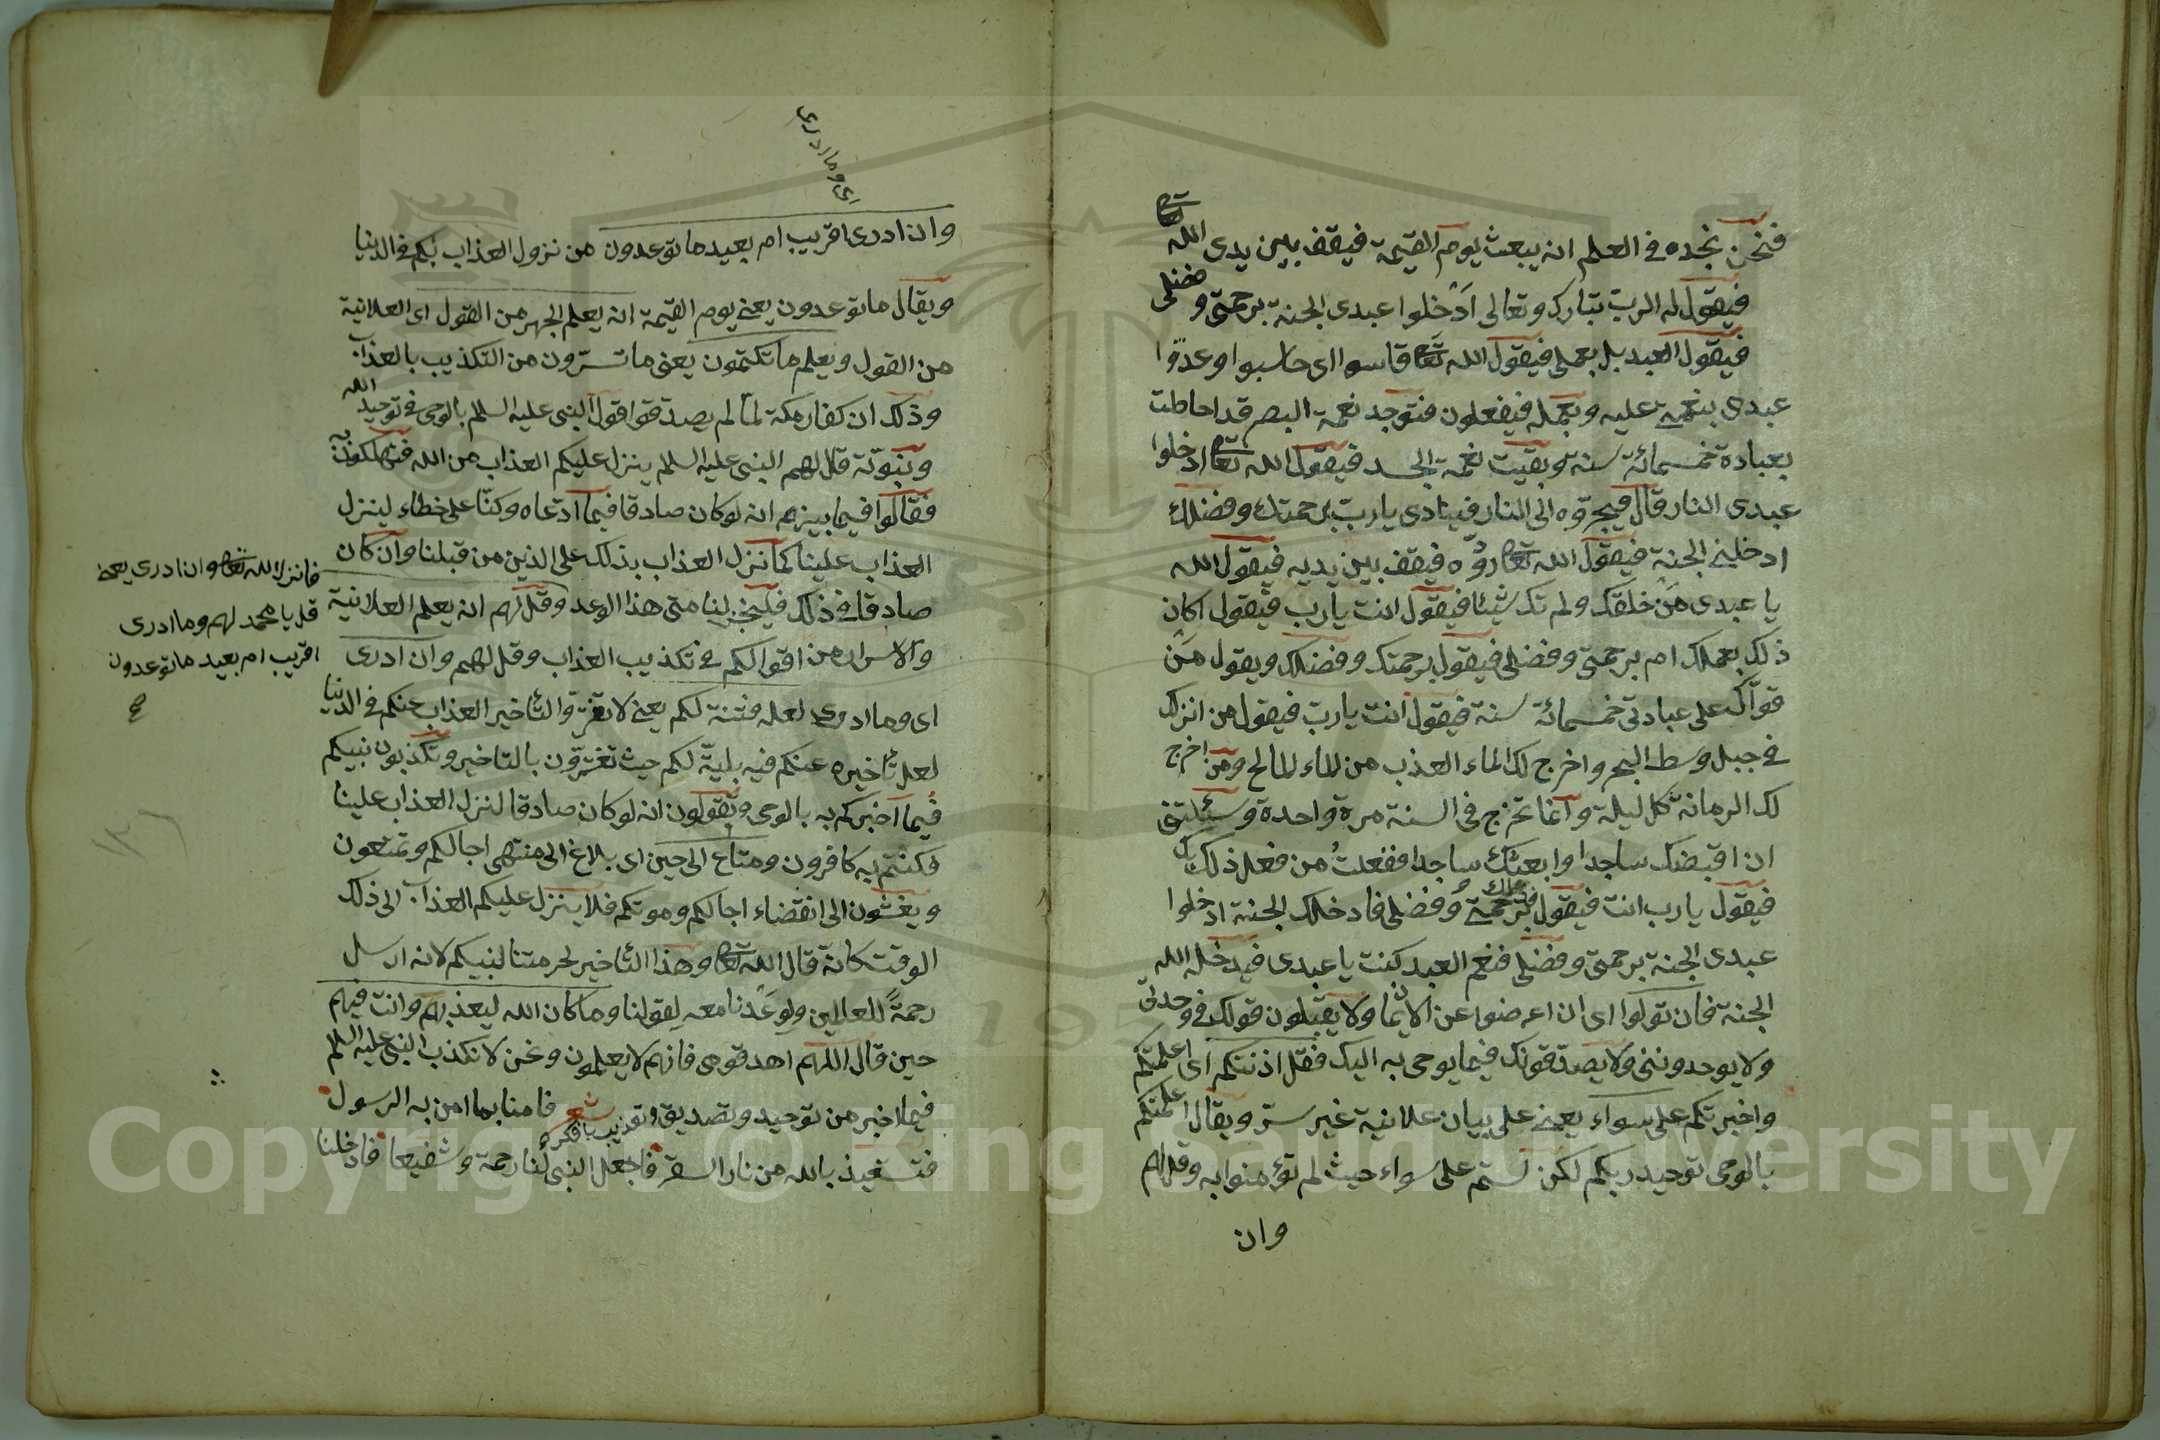 فنحن نجده في العلم انه يبعث يوم القيمة فيقف بين يدى الله تعالى
فيقول له الرب تبارك وتعالى ادخلوا عبدى الجنة برحمتى وفضلى
فيقول العبد بل بعملى فيقول الله تعالى قاسوا اى حاسبوا وعدوا
عبدى بنعمتى عليه وبعمله فيفعلون فتوجد نعمة البصر قد احاطت
بعبادة خمسمائة سنة وبقيت نعمة الجسد فيقول الله تعالى ادخلوا
عبدى النار قال فيجروه الى النار فينادى يا رب برحمتك وفضلك
ادخلنى الجنة فيقول الله تعالى ردوه فيقف بين يديه فيقول الله
يا عبدى من خلقك ولم تك شيئا فيقول انت يا رب فيقول اكان
ذلك بعملك ام برحمتى وفضلى فيقول برحمتك وفضلك ويقول من
قواك على عبادتى خمسمائة سنة فيقول انت يا رب فيقول من انزلك
في جبل وسط البحر واخرج لك الماء العذب من الماء المالح ومن اخرج
لك الرمانة كل ليلة وانما تخرج فى السنة مرة واحدة وسئلتنى
ان اقبضك ساجدا وابعثك ساجدا ففعلت من فعل ذلك بك
فيقول يا رب انت فيقول فبرحمتى وفضلى فادخلك الجنة ادخلوا
عبدى الجنة برحمتى وفضلى فنعم العبد كنت يا عبدى فيدخله الله
الجنة فان تولوا اى ان اعرضوا عن الايمان ولا يقبلون قولك في وحدتى
ولا يوحدوننى ولا يصدقونك فيما يوحى به اليك فقل اذنتكم اى اعلمتكم
واخبرتكم على سواء يعنى على بيان علانية غير ستر ويقال اعلمتكم
بالوحى توحيد ربكم لكن لستم على سواء حيث لم تؤمنوا به وقل لهم
وان
اى وما ادرى
وان ادرى اقريب ام بعيد ما توعدون من نزول العذاب بكم في الدنيا
ويقال ما توعدون يعنى يوم القيمة انه يعلم الجهر من القول اى العلانية
من القول ويعلم ما تكتمون يعنى ما تسترون من التكذيب بالعذاب
وذلك ان كفار مكة لما لم يصدقوا قول النبى عليه السلم بالوحى في توحيد الله
ونبوته قال لهم النبى عليه السلم ينزل عليكم العذاب من الله فتهلكون به
فقالوا فيما بينهم انه لو كان صادقا فيما ادعاه وكنا على خطاء لينزل
العذاب علينا كما نزل العذاب بذلك على الذين من قبلنا وان كان
صادقا في ذلك فلينجز لنا متى هذا الوعد وقل لهم انه يعلم العلانية
والاسرار من اقوالكم في تكذيب العذاب وقل لهم وان ادرى
اى وما ادرى لعله فتنة لكم يعنى لا تغتروا لتأخير العذاب عنكم في الدنيا
لعل تأخيره عنكم فيه بلية لكم حيث تغترون بالتاخير وتكذبون نبيكم
فيما اخبركم به بالوحى وتقولون انه لو كان صادقا لنزل العذاب علينا
فكنتم به كافرون ومتاع الى حين اى بلاغ الى منتهى اجالكم وتمتعون
ويغشون الى انقضاء اجالكم وموتكم فلا ينزل عليكم العذاب الى ذلك
الوقت كانه قال الله تعالى وهذا التأخير لحرمتنا لنبيكم لانه ارسل
رحمة للعالمين ولوعدنا معه لقولنا وما كان الله ليعذبهم وانت فيهم
حين قال اللهم اهد قومى فانهم لا يعلمون ونحن لا نكذب النبى عليه السلم
فيما اخبر من توحيد وتصديق وتعذيب شعر فامنا بما امن به الرسول
فنستعيذ بالله من نار السقر فاجعل النبى لنا رحمة وشفيعا فادخلنا
فانزل الله تعالى وان ادرى يعنى
قل يا محمد لهم وما ادرى
اقريب ام بعيد ما توعدون
صح
Copyright © King Saud University